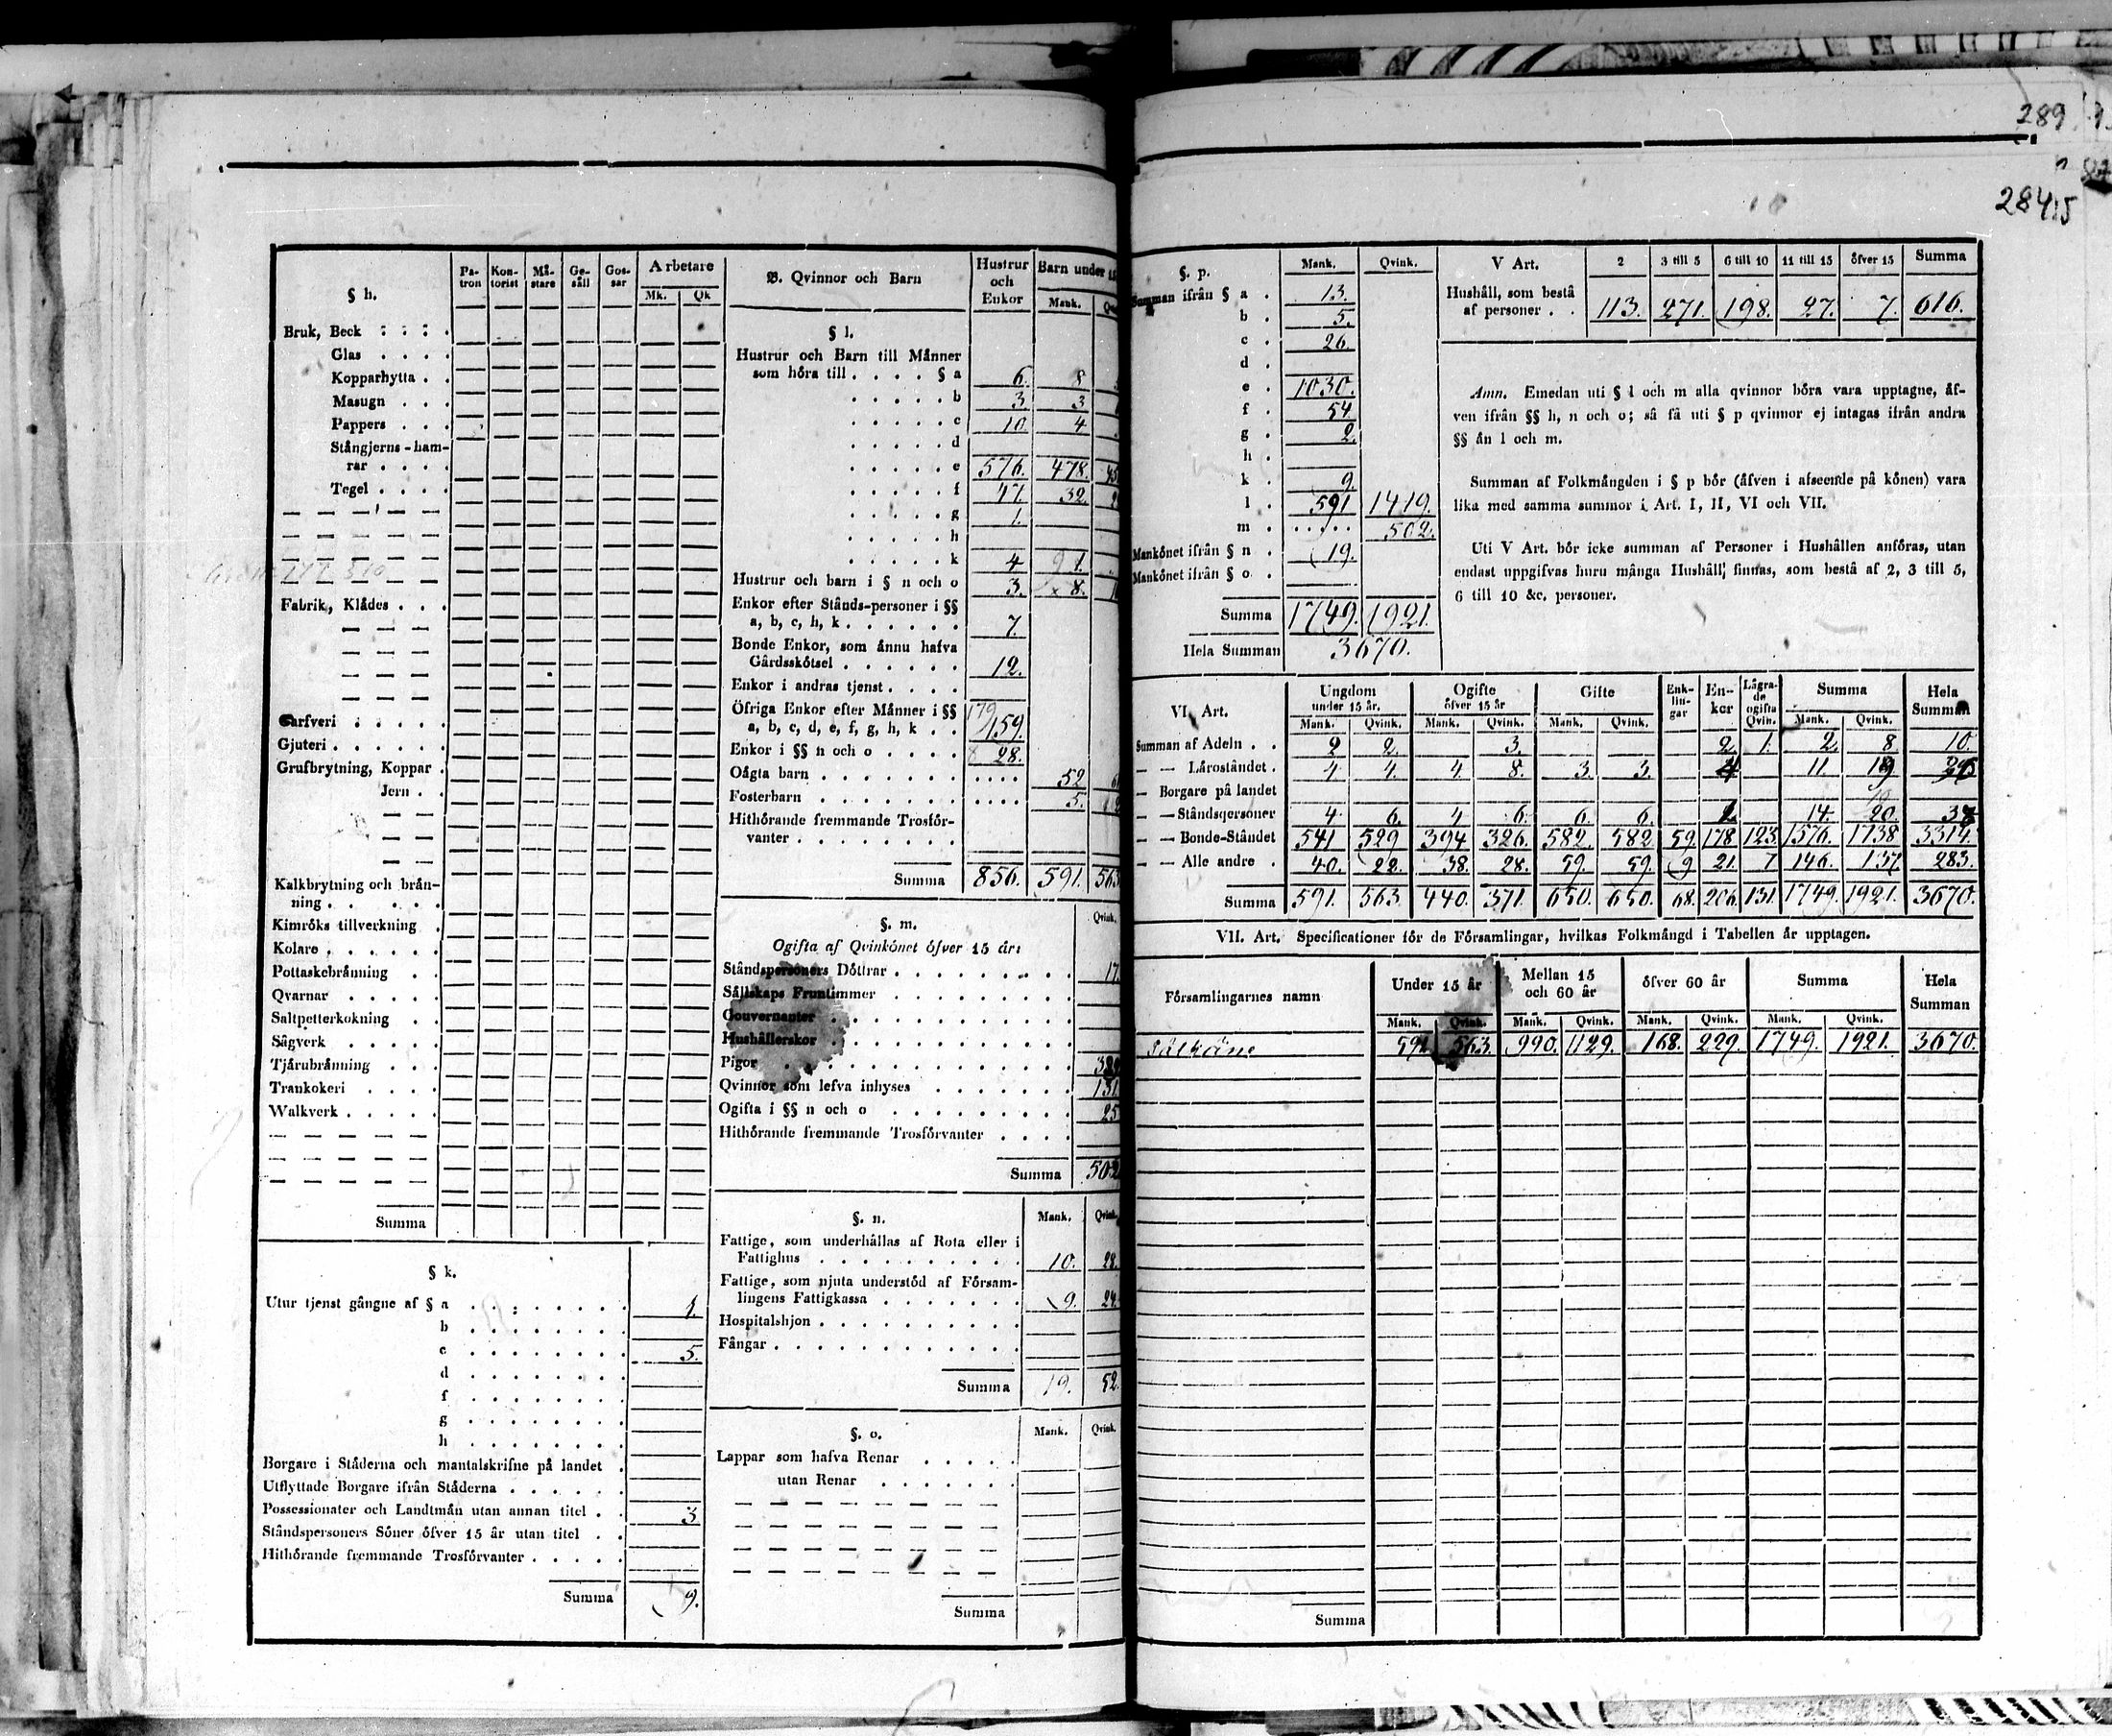 289
28415
§ h.
Pa-tron Kon-torist Må-stare Ge-säll Gos-sar Arbetare
Mk. Qk
Bruk, Beck
Glas
Kopparhytta
Masugn
Pappers
Stångjerns-ham-
rar
Tegel
Fabrik, Klådes
Garfveri
Gjuteri
Grufbrytning, Koppar
Jern
Kalkbrytning och brån-
ning
Kimröks tillverkning
Kolare
Pottaskebrånning
Qvarnar
Saltpetterkokning
Sågverk
Tjårubrånning
Trankokeri
Walkverk
Summa
§ k.
Utur tjenst gångne af § a 1.
b
c 5.
d
f
g
h
Borgare i Ståderna och mantalskrifne på landet
Utflyttade Borgare ifrån Ståderna
Possessionater och Landtmån utan annan titel 3
Ståndspersoners Söner öfver 15 år utan titel
Hithörande fremmande Trosförvanter
Summa 9.
B. Qvinnor och Barn
Hustrur och Enkor Barn under
Mank.
§ l.
Hustrur och Barn till Månner
som höra till § a 6. 8
b 3 3
c 10 4
d
e 576. 478.
f 47 32.
g 1.
h
k 4 1.
Hustrur och barn i § n och o 3. 8.
Enkor efter Stånds-personer i §§
a, b, c, h, k 7.
Bonde Enkor, som ånnu hafva
Gårdsskötsel 12.
Enkor i andras tjenst
Öfriga Enkor efter Månner i §§ 179
a, b, c, d, e, f, g, h, k 159.
Enkor i §§ n och o 28.
Oågta barn 52
Fosterbarn 5.
Hithörande fremmande Trosför-
vanter
Summa 856. 591. 563
§. m.
Qvink.
Ogifta af Qvinkönet öfver 15 år:
Ståndspersoners Döttrar 17
Sållskaps Fruntimmer
Gouvernanter
Hushållerskor
Pigor
Qvinnor som lefva inhyses 131.
Ogifta i §§ n och o 25
Hithörande fremmande Trosförvanter
Summa 502
§. n.
Mank. Qvink.
Fattige, som underhållas af Rota eller i
Fattighus 10. 28.
Fattige, som njuta understöd af Försam-
lingens Fattigkassa 9. 24.
Hospitalshjon
Fångar
Summa 19. 52.
§. o.
Mank. Qvink.
Lappar som hafva Renar
utan Renar
Summa
§. p.
Mank. Qvink.
Summan ifrån § a 13.
b 5.
c 26.
d
e 1030.
f 54
g 2.
h
k 9
l 591 1419.
m 502.
Mankönet ifrån § n 19.
Mankönet ifrån § o
Summa 1749. 1921.
Hela Summan 3670.
V Art. 2 3 till 5 6 till 10 11 till 15 öfver 15 Summa
Hushåll, som bestå
af personer 113. 271. 198. 27. 7. 616.
Anm. Emedan uti § l och m alla qvinnor böra vara upptagne, åf-
ven ifrån §§ h, n och o; så få uti § p qvinnor ej intagas ifrån andra
§§ ån l och m.
Summan af Folkmångden i § p bör (åfven i afseende på könen) vara
lika med samma summor i Art. I, II, VI och VII.
Uti V Art. bör icke summan af Personer i Hushållen anföras, utan
endast uppgifvas huru många Hushåll finnas, som bestå af 2, 3 till 5,
6 till 10 &c. personer.
VI. Art. Ungdom under 15 år. Ogifte öfver 15 år Gifte Enk-lin-gar En-kor Lågra-de ogifta Qvin. Summa Hela Summan
Mank. Qvink. Mank. Qvink. Mank. Qvink. Mank. Qvink.
Summan af Adeln 2 2. 3. 2 1. 2 8 10.
— — Låroståndet 4 4. 4. 8. 3. 3. 11.
— Borgare på landet
— — Ståndspersoner 4 6. 4 6. 6. 6. 14. 20
— — Bonde-Ståndet 541 529 394 326. 582. 582. 59. 178 123. 1576. 1738 3314.
— — Alle andre 40. 22. 38. 28. 59. 59. 9 21. 7 146. 137. 283.
Summa 591. 563. 440. 371. 650. 650. 68. 206. 131. 1749. 1921. 3670.
VII. Art. Specificationer för de Församlingar, hvilkas Folkmångd i Tabellen år upptagen.
Församlingarnes namn Under 15 år Mellan 15 och 60 år öfver 60 år Summa Hela Summan
Mank. Qvink. Mank. Qvink. Mank. Qvink. Mank. Qvink.
591. 563. 990. 1129. 168. 229. 1749. 1921. 3670.
Summa